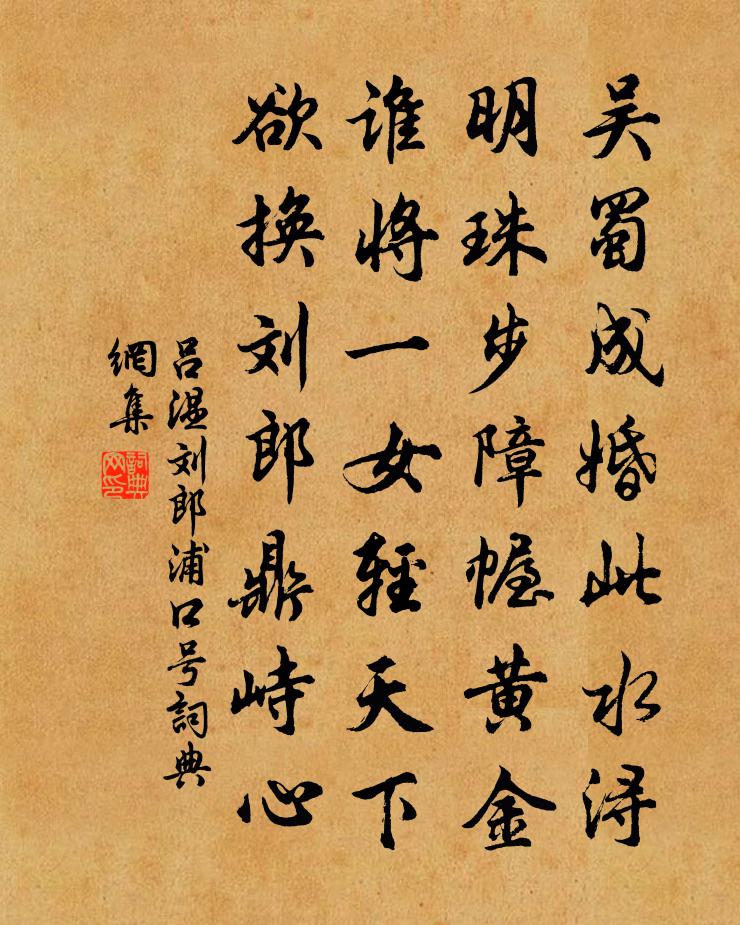 吴蜀成婚此水浔
明珠步障幄黄金
谁将一女轻天下
欲换刘郎鼎峙心
吕温刘郎浦口号詞典
網集
詞典网印